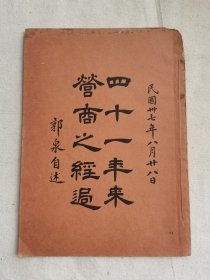 民國卅七年八月廿八日
四十一年来
營商之經過
郭泉自述